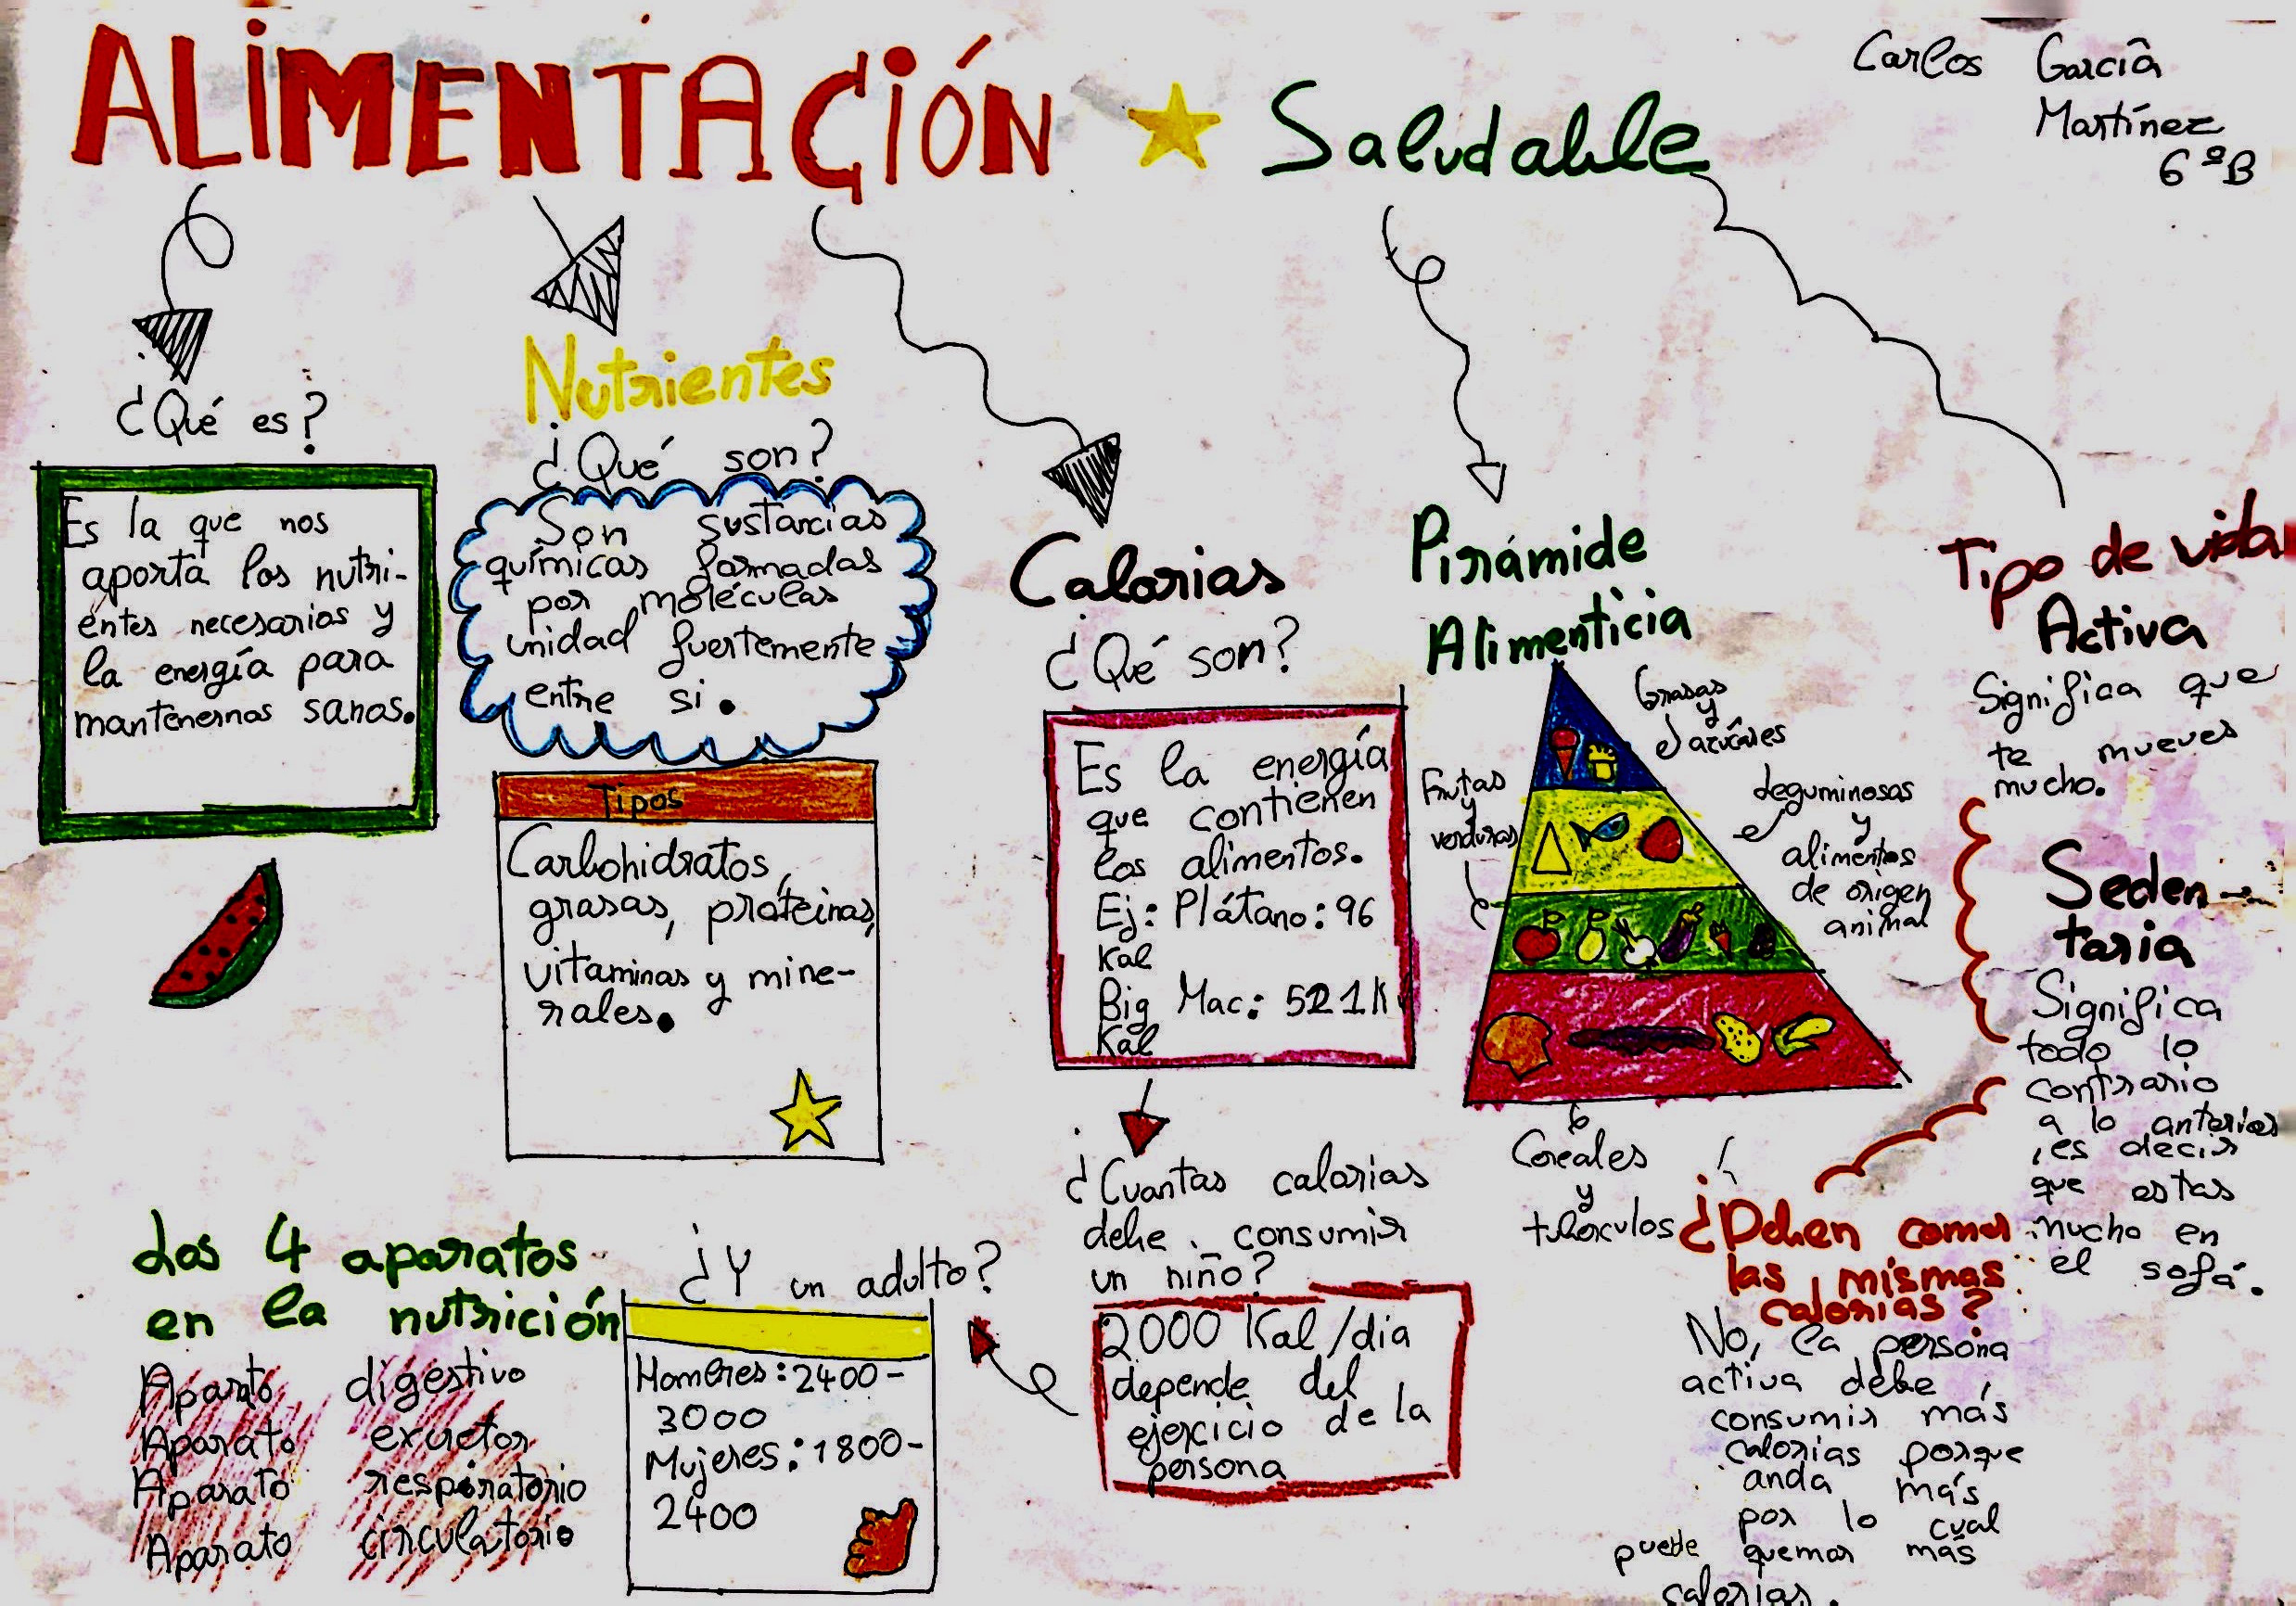 ALIMENTACIÓN Saludable
Carlos García
Martínez
6ºB
¿Qué es?
Es la que nos
aporta los nutri-
entes necesarios y
la energía para
mantenernos sanos.
Nutrientes
¿Qué son?
Son sustancias
químicas formadas
por moléculas
unidad fuertemente
entre si.
Tipos
Carbohidratos,
grasas, proteinas,
vitaminas y mine-
rales.
Calorias
¿Qué son?
Es la energía
que contienen
los alimentos.
Ej: Plátano: 96
Kal
Big Mac: 521 K
Kal
¿Cuantas calorias
debe consumir
un niño?
2000 Kal/dia
depende del
ejercicio de la
persona
¿Y un adulto?
Hombres: 2400-
3000
Mujeres: 1800-
2400
Los 4 aparatos
en la nutrición
Aparato digestivo
Aparato exretor
Aparato respiratorio
Aparato circulatorio
Pirámide
Alimenticia
Grasas
y
azúcares
Frutas
y
verduras
Leguminosas
y
alimentos
de origen
animal
Cereales
y
tubérculos
Tipo de vida
Activa
Significa que
te mueves
mucho.
Seden-
taria
Significa
todo lo
contrario
a lo anterior
, es decir
que estas
mucho en
el sofá.
¿Deben comer
las mismas
calorias?
No, la persona
activa debe
consumir más
calorias porque
anda más
por lo cual
puede quemar más
calorias.